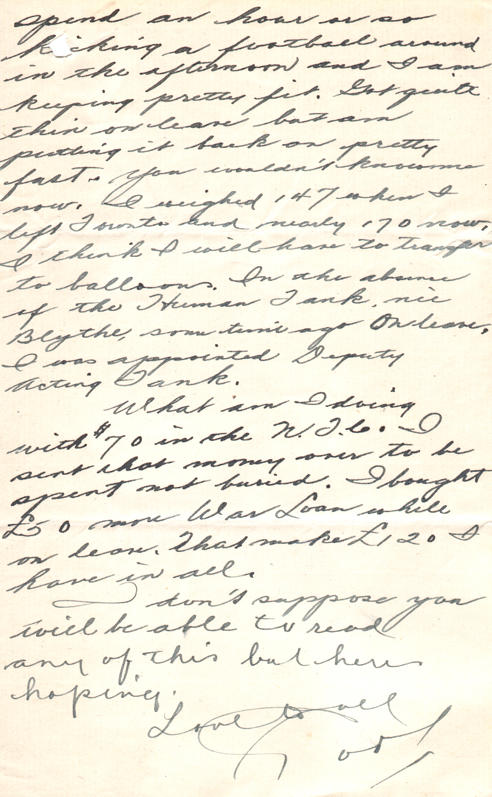 spend an hour or so
kicking a football around
in the afternoon and I am
keeping pretty fit. Got quite
thin on leave but am
putting it back on pretty
fast. You wouldn't know me
now. I weighed 147 when I
left Toronto and nearly 170 now.
I think I will have to transfer
to balloons. In the absence
of the Human Tank, nee
Blythe, some time ago on leave,
I was appointed Deputy
Acting Tank.
What am I doing
with $70 in the N.T.Co. I
sent that money over to be
spent not buried. I bought
£50 more War Loan while
on leave. That make £120 I
have in all.
I don't suppose you
will be able to read
any of this but heres
hoping.
Love to all